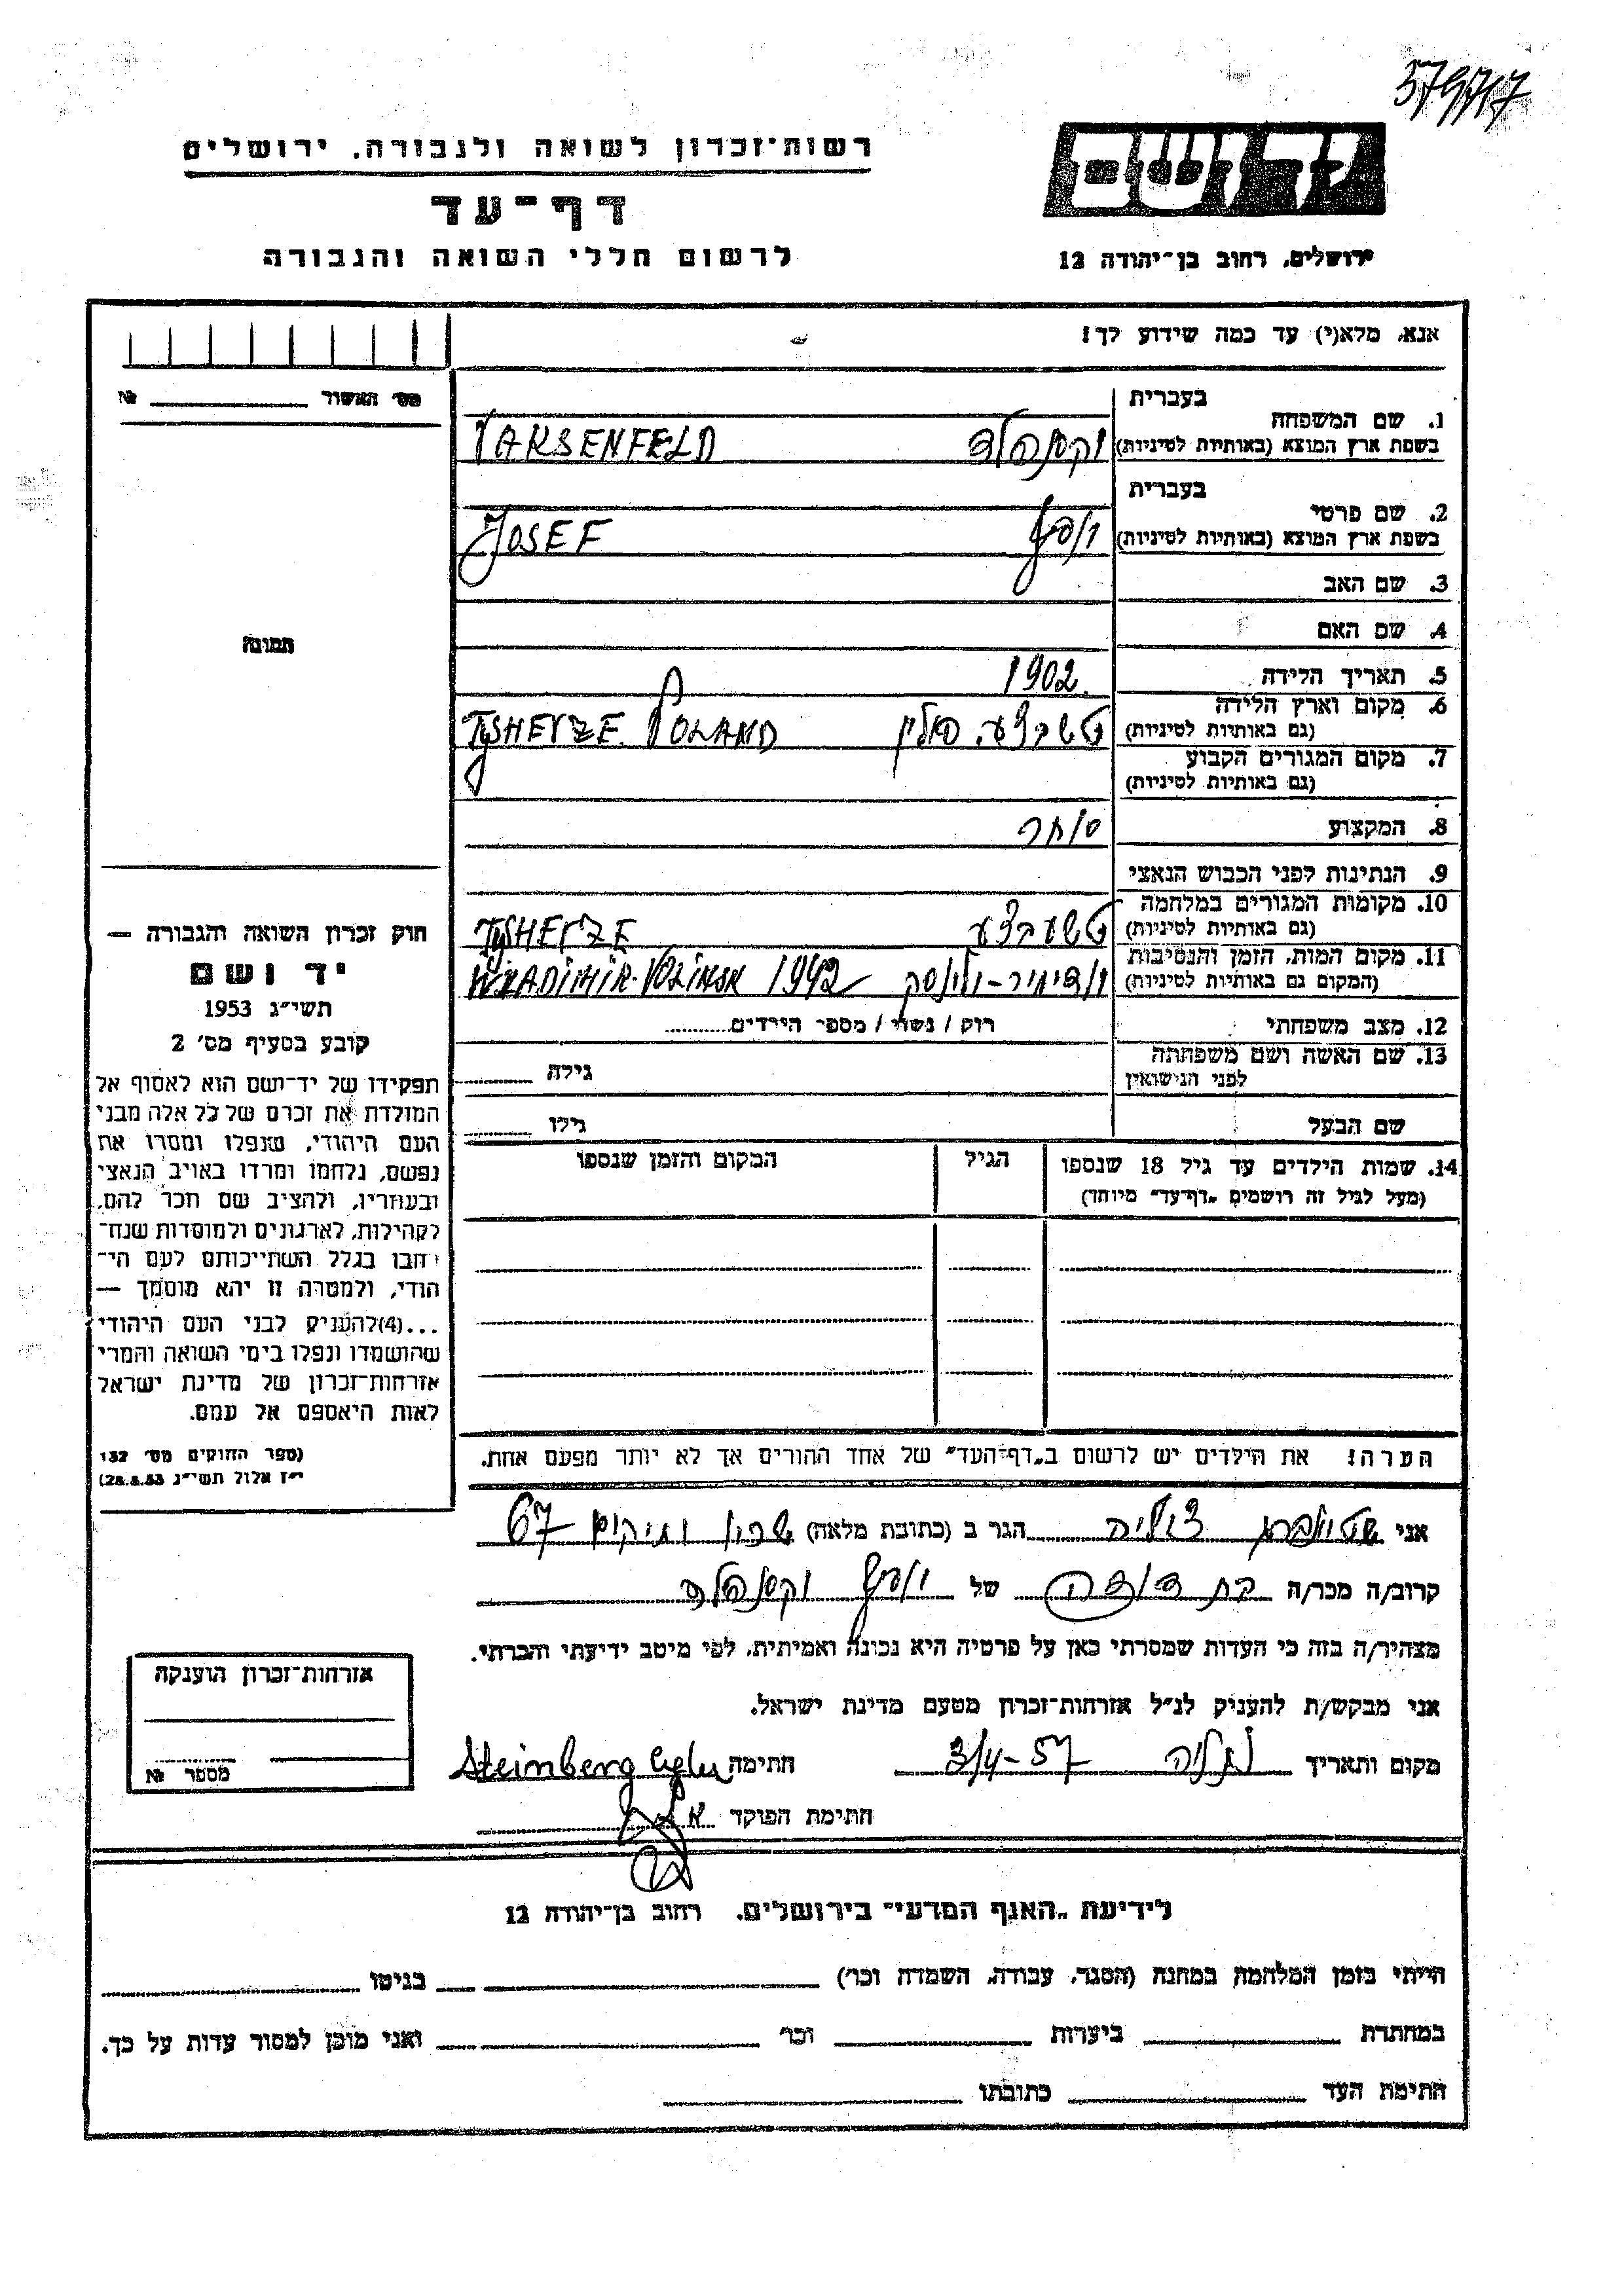 579717
רשות־זכרון לשואה ולגבורה, ירושלים
דף־עד
לרשום חללי השואה והגבורה
יד ושם
ירושלים, רחוב בן־יהודה 12
אנא, מלא(י) עד כמה שידוע לך!
מס׳ האשור № 
1. שם המשפחה בעברית
בשפת ארץ המוצא (באותיות לטיניות) וקסנפלד VAKSENFELD
2. שם פרטי בעברית
בשפת ארץ המוצא (באותיות לטיניות) יוסף JOSEF
3. שם האב
4. שם האם
5. תאריך הלידה 1902
6. מקום וארץ הלידה
(גם באותיות לטיניות) פולין POLAND
7. מקום המגורים הקבוע
(גם באותיות לטיניות)
8. המקצוע סוחר
9. הנתינות לפני הכבוש הנאצי
10. מקומות המגורים במלחמה
(גם באותיות לטיניות)
11. מקום המות, הזמן והנסיבות
(המקום גם באותיות לטיניות) ולדימיר-וולינסק WLADIMIR-VOLINSK 1942
12. מצב משפחתי רוק / נשוי / מספר הילדים
13. שם האשה ושם משפחתה
לפני הנישואין גילה
שם הבעל גילו
14. שמות הילדים עד גיל 18 שנספו הגיל המקום והזמן שנספו
(מעל לגיל זה רושמים „דף־עד" מיוחד)
הערה! את הילדים יש לרשום ב„דף־העד" של אחד ההורים אך לא יותר מפעם אחת.
תמונה
חוק זכרון השואה והגבורה —
יד ושם
תשי״ג 1953
קובע בסעיף מס׳ 2
תפקידו של יד־ושם הוא לאסוף אל
המולדת את זכרם של כל אלה מבני
העם היהודי, שנפלו ומסרו את
נפשם, נלחמו ומרדו באויב הנאצי
ובעוזריו, ולהציב שם וזכר להם,
לקהילות, לארגונים ולמוסדות שנח־
רבו בגלל השתייכותם לעם הי־
הודי, ולמטרה זו יהא מוסמך —
...(4)להעניק לבני העם היהודי
שהושמדו ונפלו בימי השואה והמרי
אזרחות־זכרון של מדינת ישראל
לאות היאספם אל עמם.
(ספר החוקים מס׳ 132
י״ז אלול תשי״ג 28.8.53)
אני שטיינברג צילה הגר ב (כתובת מלאה) שכון ותיקים 67
קרוב/ה מכר/ה בת דודה של יוסף וקסנפלד
מצהיר/ה בזה כי העדות שמסרתי כאן על פרטיה היא נכונה ואמיתית, לפי מיטב ידיעתי והכרתי.
אני מבקש/ת להעניק לנ״ל אזרחות־זכרון מטעם מדינת ישראל.
מקום ותאריך נתניה 3/4-57 חתימה Steinberg
חתימת הפוקד
אזרחות־זכרון הוענקה
מספר №
לידיעת „האגף המדעי" בירושלים, רחוב בן־יהודה 12
הייתי בזמן המלחמה במחנה (הסגר, עבודה, השמדה וכו׳) בגיטו
במחתרת ביערות וכו׳ ואני מוכן למסור עדות על כך.
חתימת העד כתובתו